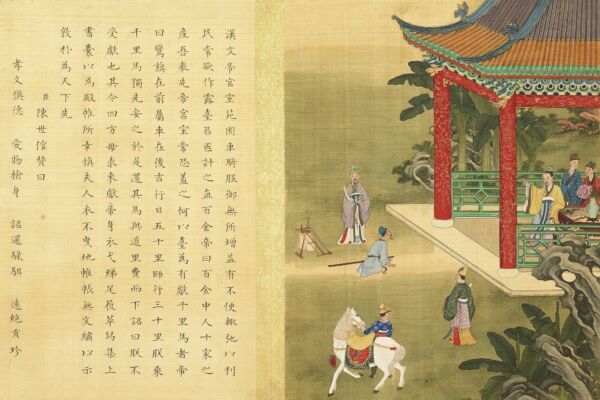 漢文帝宮室苑囿車騎服御無所增益有不便輒弛以利
民常欲作露臺召匠計之直百金帝曰百金中人十家之
產吾奉先帝宮室常恐羞之何以臺為有獻千里馬者帝
曰鸞旗在前屬車在後吉行日五十里師行三十里朕乘
千里馬獨先安之於是還其馬與道里費而下詔曰朕不
受獻也其令四方毋求來獻帝身衣弋綈足履革舄集上
書囊以為殿帷所幸慎夫人衣不曳地帷帳無文繡以示
敦朴為天下先
臣陳世倌贊曰
孝文慎德 愛物檢身 詔還騄駬 遠絕貢珍